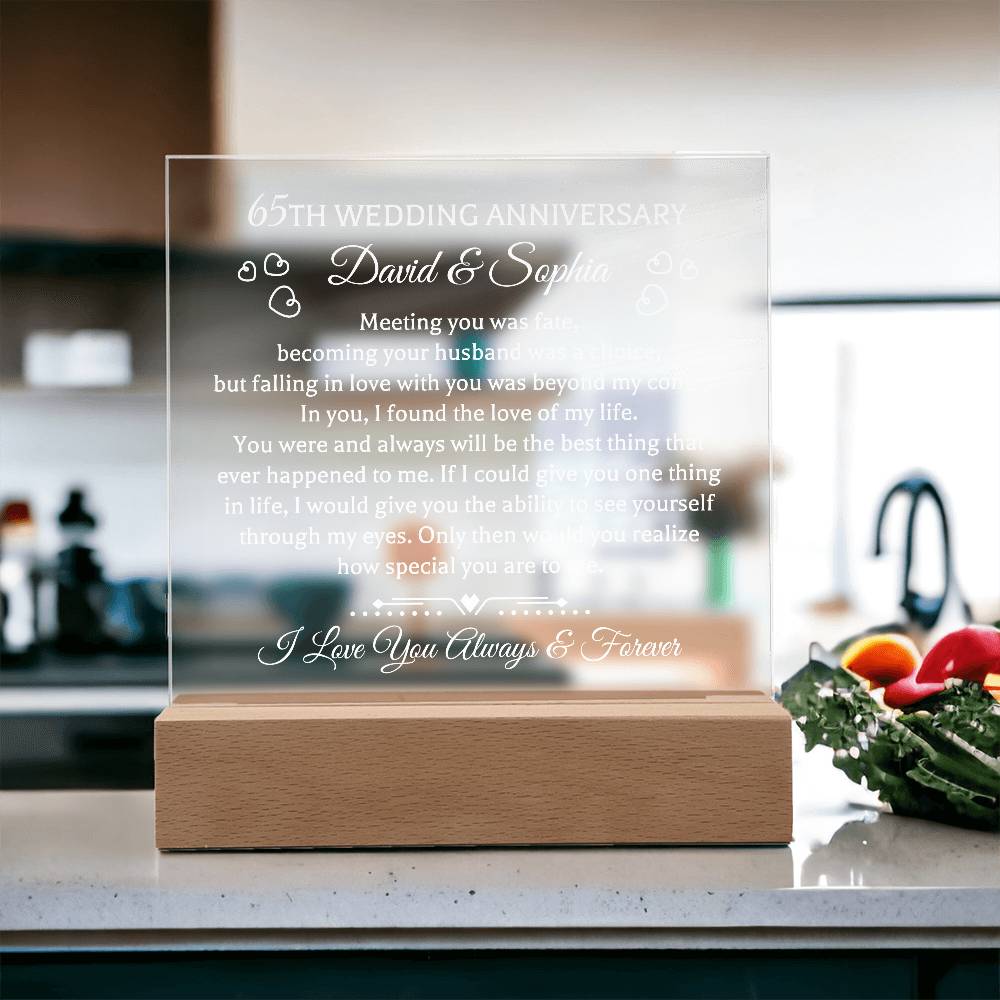 65TH WEDDING ANNIVERSARY
David & Sophia
Meeting you was fate,
becoming your husband was a choice,
but falling in love with you was beyond my
In you, I found the love of my life.
You were and always will be the best thing that
ever happened to me. If I could give you one thing
in life, I would give you the ability to see yourself
through my eyes. Only then would you realize
how special you are to
I Love You Always & Forever